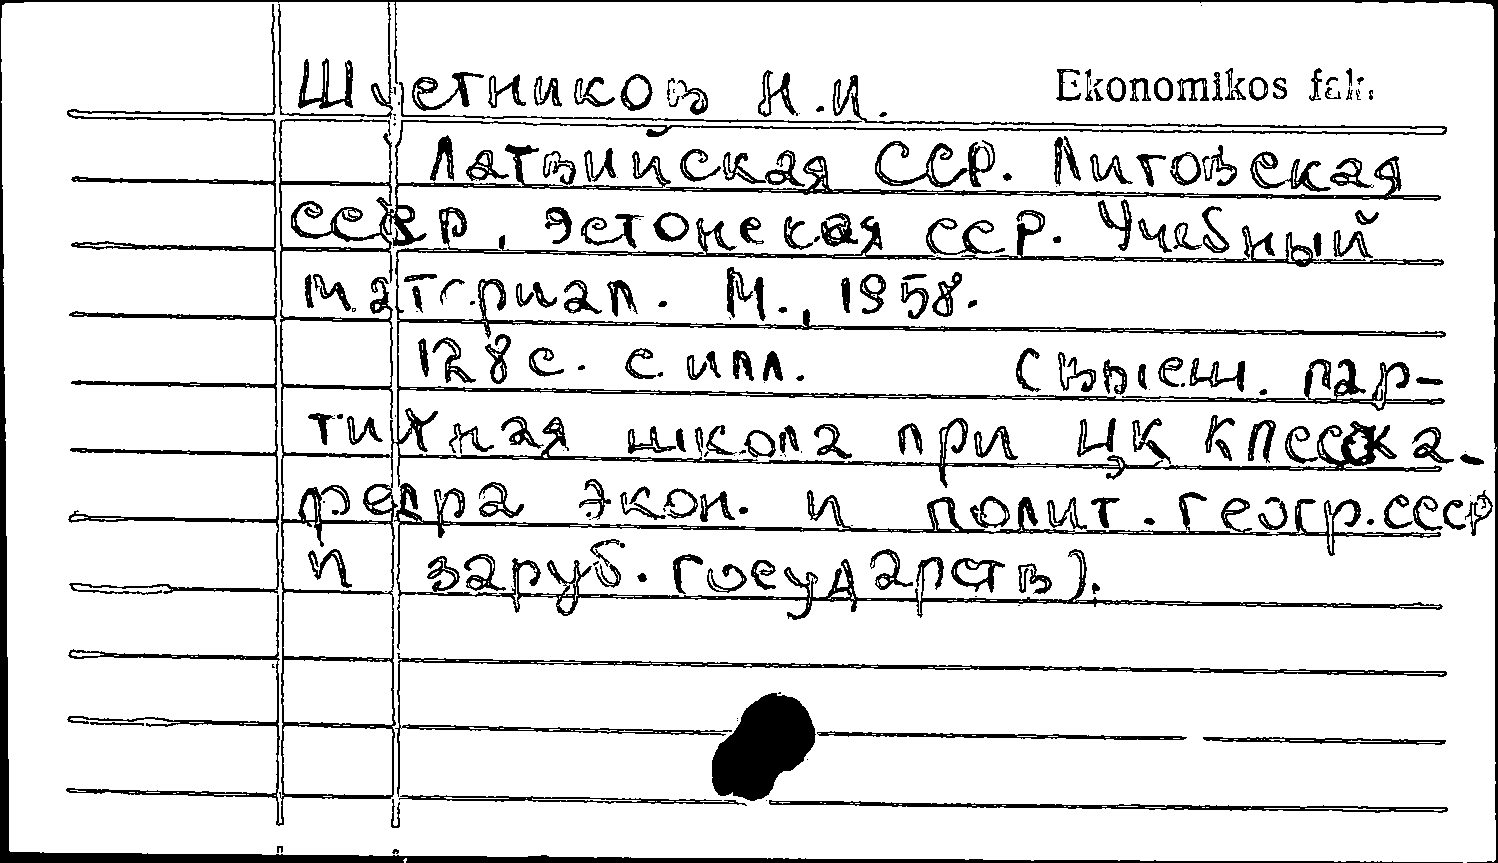 Шуетников Н.И. Ekonomikos fak.
Латвийская ССР. Литовская
ССР, Эстонская ССР. Учебный
материал. М., 1958.
128 с. с илл. (Высш. пар-
тийная школа при ЦК КПСС Ка-
федра экон. и полит. геогр. СССР
и заруб. государств).